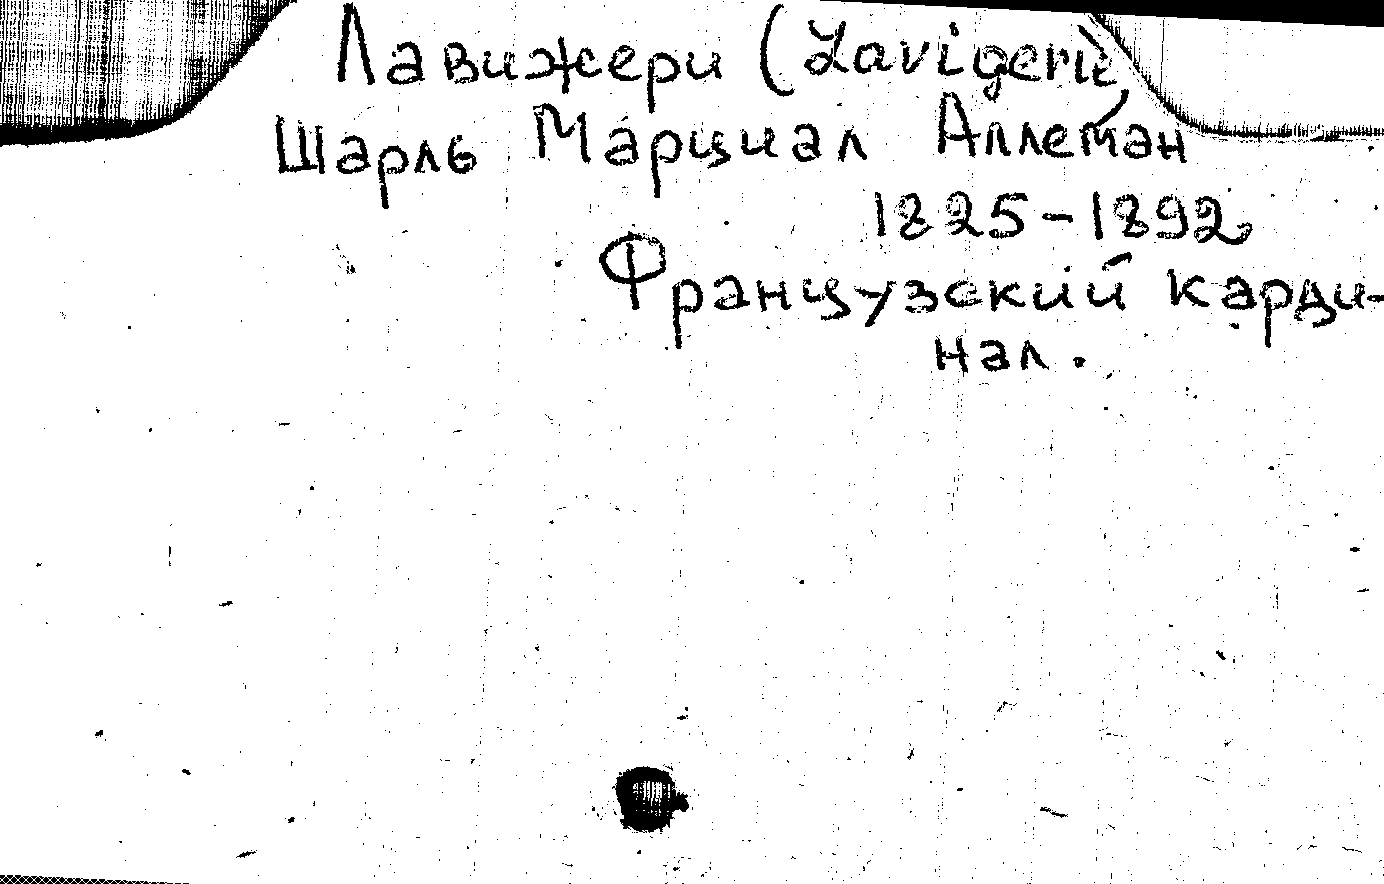 Лавижери (Lavigerie)
Шарль Марциал Аллеман
1825-1892
Французский карди-
нал.